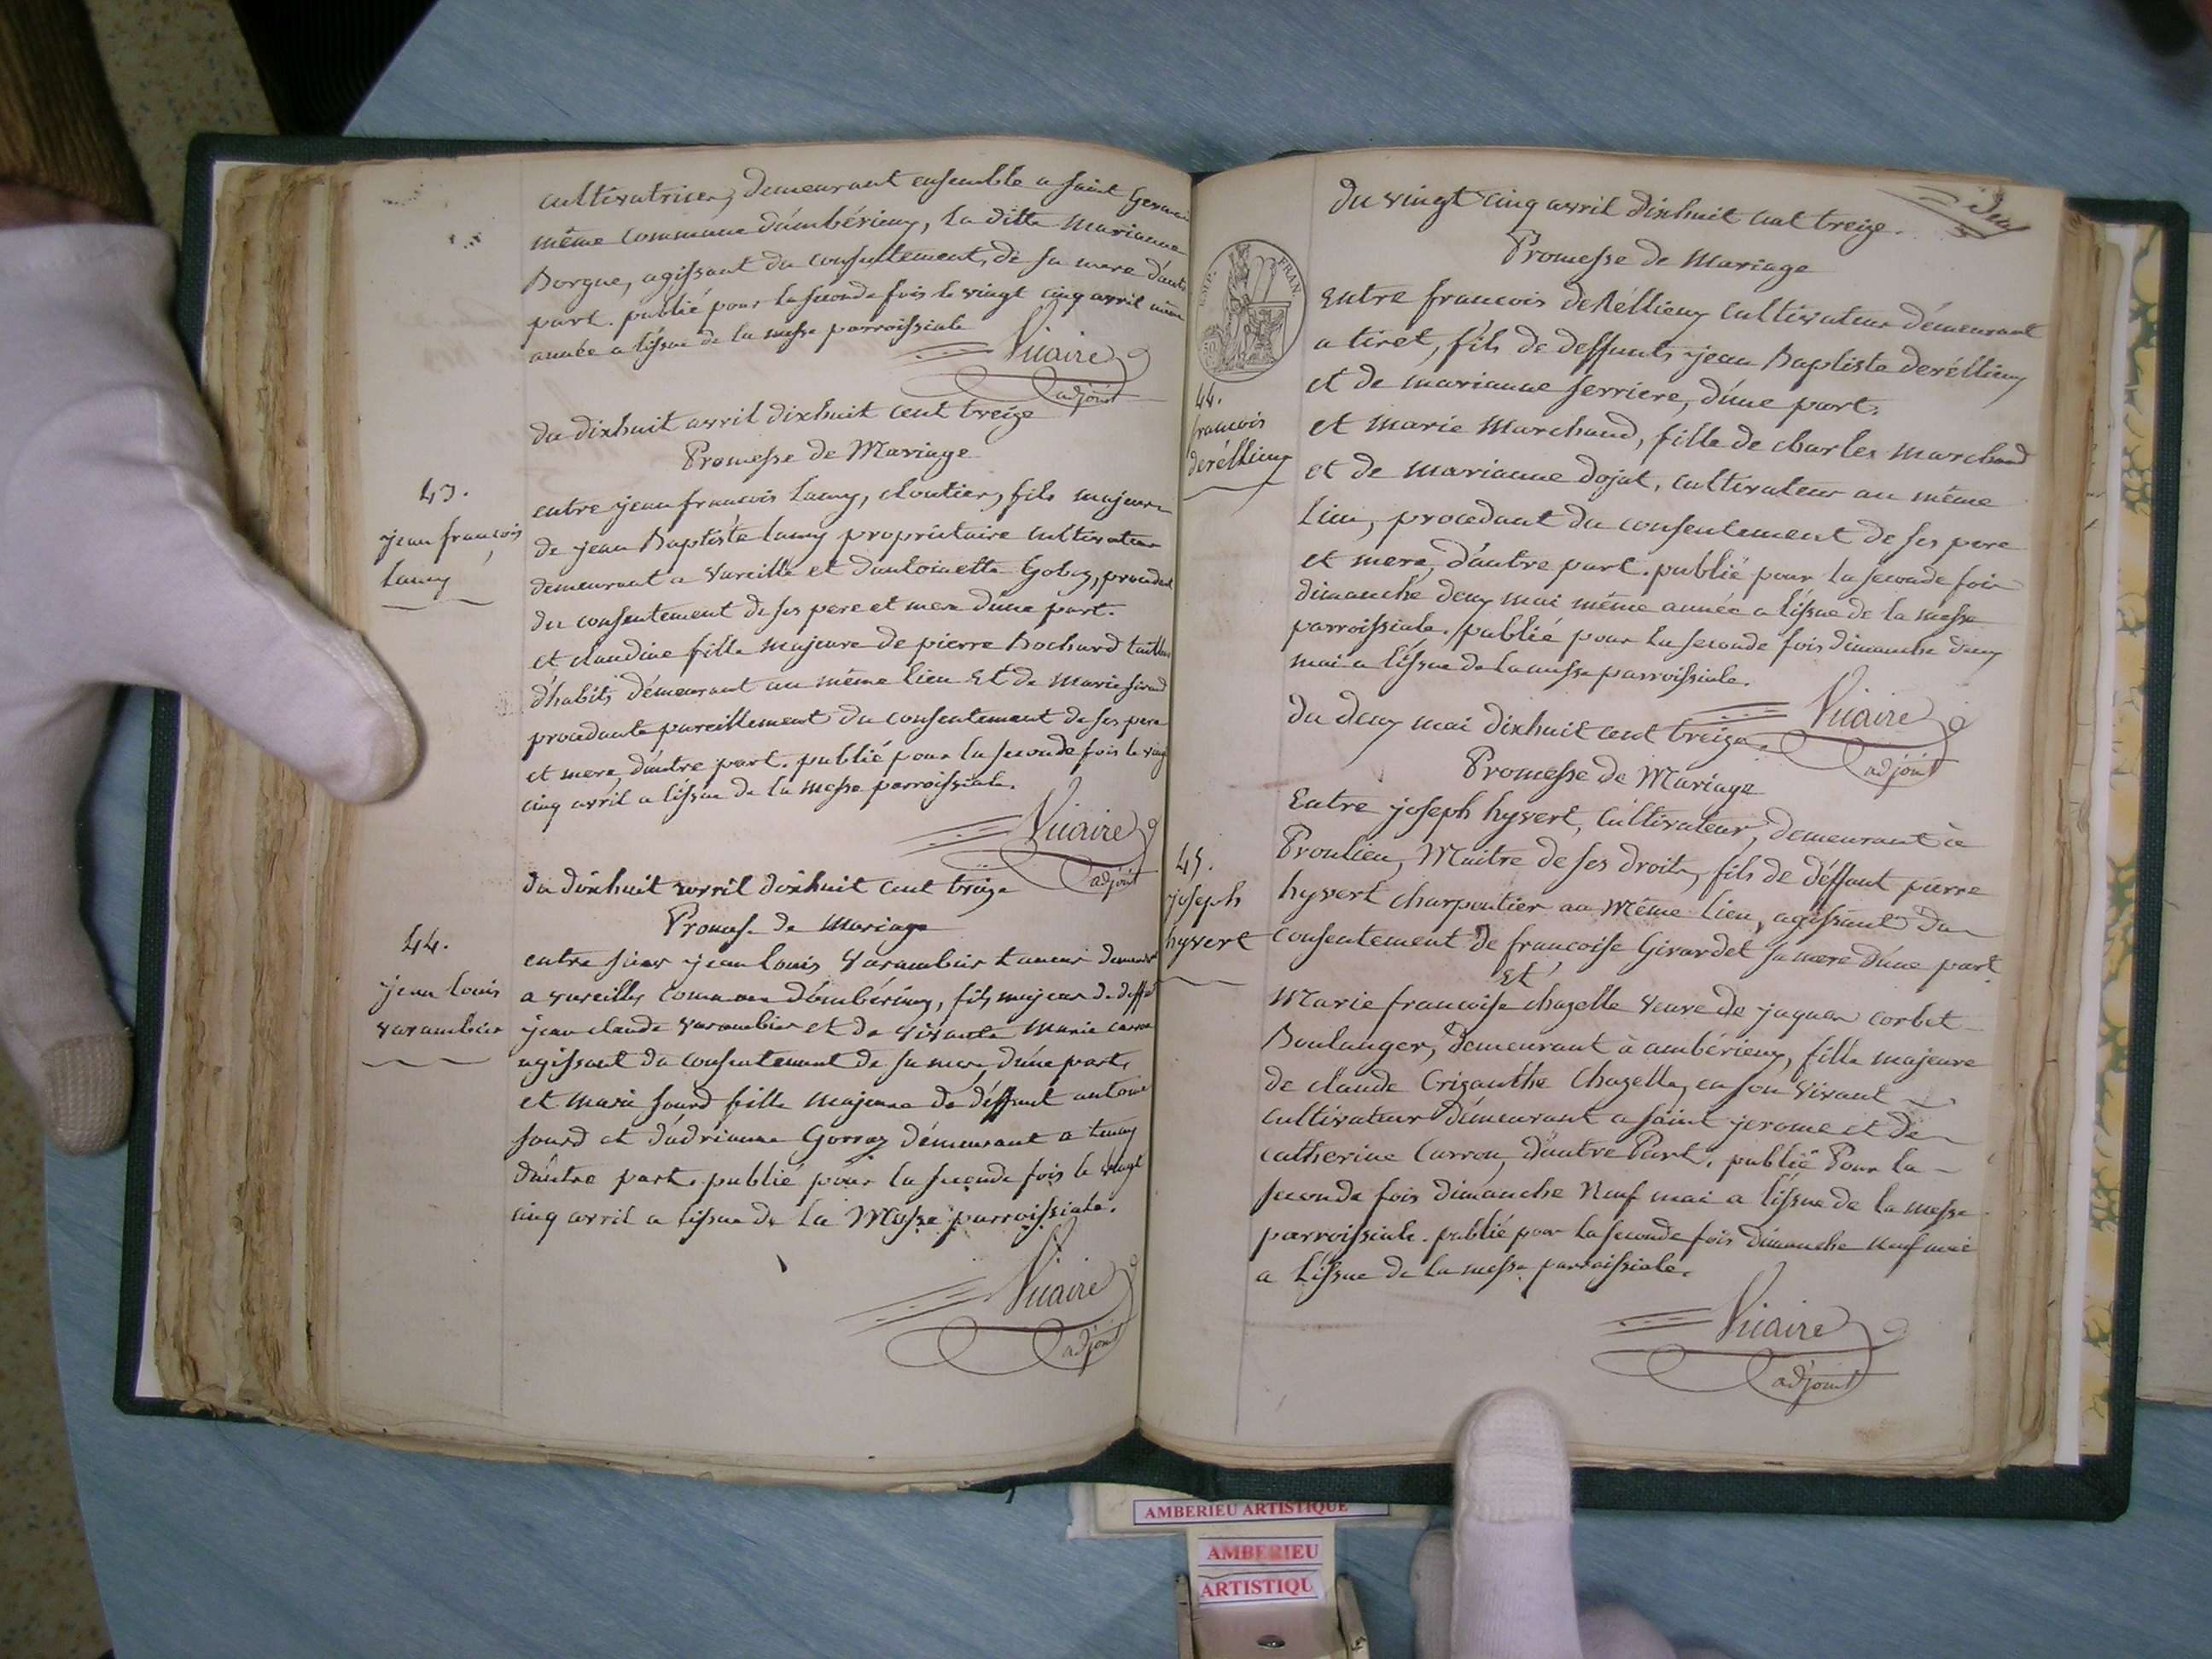 cultivatrice, demeurant ensemble a saint Germai
même commune d'ambérieux, la ditte marianne
Borgne, agissant du consentement, de sa mere d'autre
part. publié pour la seconde fois le vingt cinq avril même
année a l'issue de la messe parroissiale
Vicaire
adjoint
du dixhuit avril dixhuit cent treize
Promesse de Mariage
43.
jean francois
Lamy
entre jean francois Lamy, cloutier, fils majeur
de jean Baptiste Lamy propriétaire cultivateur
demeurant a Vareille et d'antoinette Gobez, procedant
du consentement de ses pere et mere d'une part.
et claudine fille majeure de pierre Bochard tailleur
d'habits demeurant au même lieu Et de Marie
procedante pareillement du consentement de ses pere
et mere, d'autre part. publié pour la seconde fois le vingt
cinq avril a l'issue de la messe parroissiale.
Vicaire
adjoint
du dixhuit avril dixhuit cent treize
Promesse de Mariage
44.
jean Louis
varambier
entre sieur jean Louis Varambier taneur demeurant
a vareilles commune d'ambérieux, fils majeur de deffunt
jean claude varambier et de vivante Marie Carron
agissant du consentement de sa mere d'une part,
et marie sourd fille majeure de déffunt antoine
sourd et d'adrianne Gorraz démeurant a tenay
d'autre part. publié pour la seconde fois le vingt
cinq avril a l'issue de la Messe parroissiale.
Vicaire
adjoint
du vingt cinq avril dixhuit cent treize.
Promesse de Mariage
EMP. FRAN.
44.
francois
deréllieux
Entre francois deréllieux cultivateur démeurant
a tiret, fils de deffunts jean Baptiste deréllieux
et de marianne ferriere, d'une part.
et marie Marchand, fille de charles Marchand
et de marianne dojat, cultivateur au même
lieu, procedant du consentement de ses pere
et mere, d'autre part. publié pour la seconde fois
dimanche deux mai même année a l'issue de la messe
parroissiale. publié pour la seconde fois dimanche deux
mai a l'issue de la messe parroissiale.
Vicaire
adjoint
du deux mai dixhuit cent treize.
Promesse de Mariage
45.
joseph
hyvert
Entre joseph hyvert, cultivateur, demeurant à
Proulieu, Maitre de ses droits, fils de déffunt pierre
hyvert charpentier au Même lieu, agissant du
consentement de francoise Girardet sa mere d'une part
Et
Marie francoise chazelle veuve de jaques corbet
Boulanger, demeurant à ambérieux, fille majeure
de claude Crizanthe Chazelle, en son vivant
cultivateur démeurant a saint jerome et de
catherine Carron, d'autre Part, publié Pour la
seconde fois dimanche Neuf mai a l'issue de la messe
parroissiale. publié pour la seconde fois dimanche neuf mai
a l'issue de la messe parroissiale.
Vicaire
adjoint
AMBERIEU ARTISTIQUE
AMBERIEU
ARTISTIQU